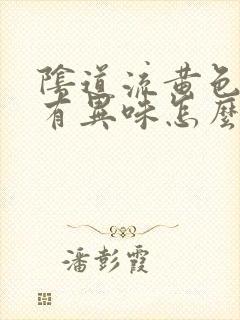 陰道流黃色
有異味怎麼
潘彭霞